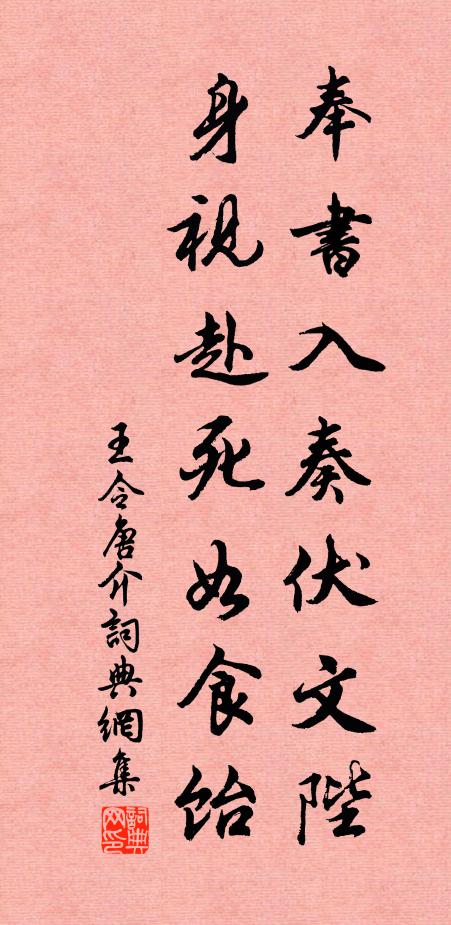 奉書入奏伏文陛
身視赴死如食飴
王令唐介詞典網集
詞典網印